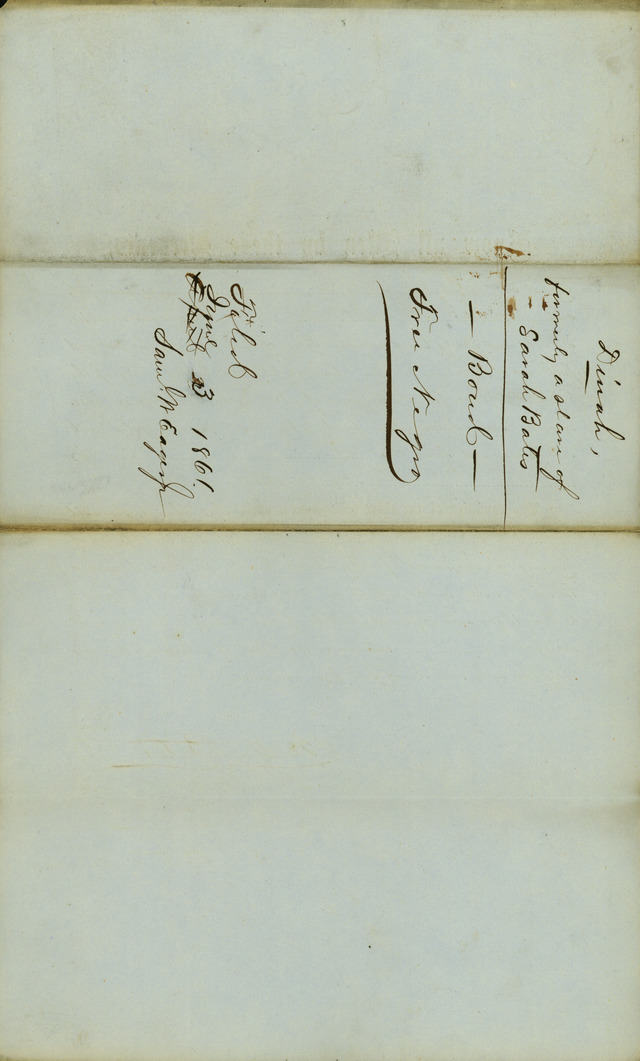 Dinah,
formerly a slave of
Sarah Bates
— Bond —
Free Negro
Filed
June 3 1861.
Saml W Eager Jr